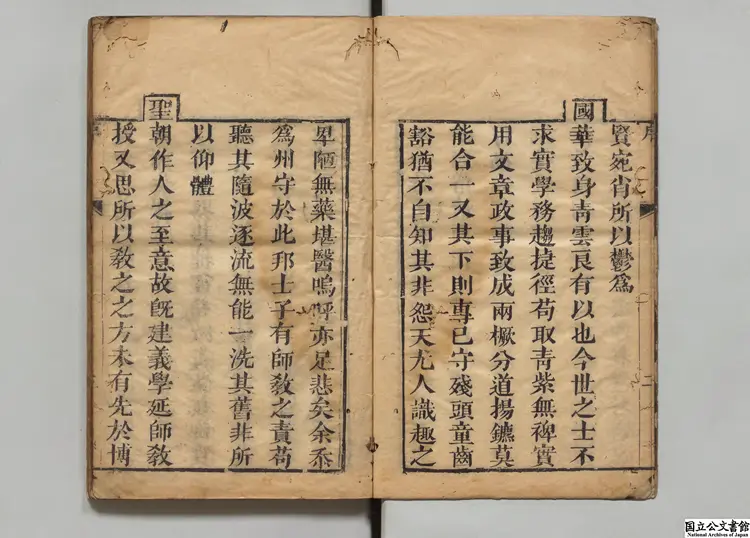 賢宛肖所以鬱爲
國華致身靑雲良有以也今世之士不
求實學務趨捷徑苟取靑紫無裨實
用文章政事致成兩橛分道揚鑣莫
能合一又其下則專已守殘頭童齒
豁猶不自知其非怨天尤人識趣之
卑陋無藥堪醫嗚呼亦足悲矣余忝
爲州守於此邦士子有師敎之責苟
聽其隨波逐流無能一洗其舊非所
以仰體
聖朝作人之至意故旣建義學延師敎
授又思所以敎之之方未有先於博
序
二
国立公文書館
National Archives of Japan